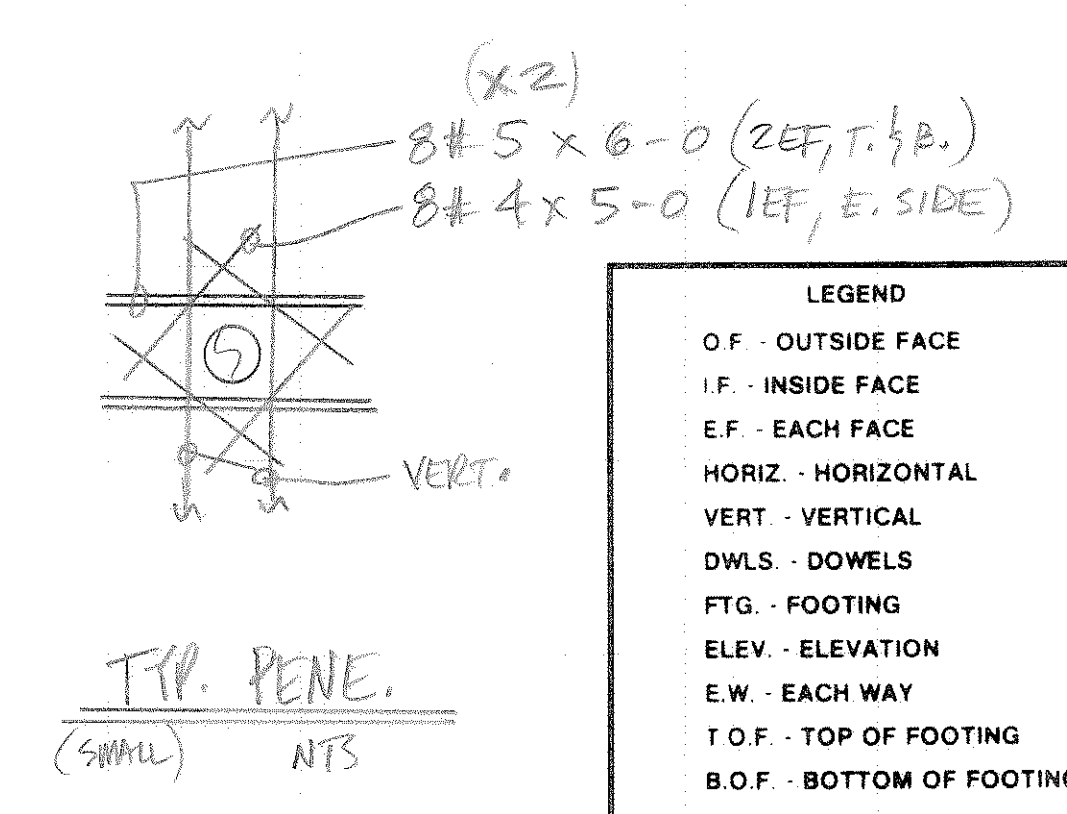 (x2)
8#5 x 6-0 (2EF, T. & B.)
8#4 x 5-0 (1EF, E. SIDE)
VERT.
TYP. PENE.
(SMALL) NTS
LEGEND
O.F. - OUTSIDE FACE
I.F. - INSIDE FACE
E.F. - EACH FACE
HORIZ. - HORIZONTAL
VERT. - VERTICAL
DWLS. - DOWELS
FTG. - FOOTING
ELEV. - ELEVATION
E.W. - EACH WAY
T.O.F. - TOP OF FOOTING
B.O.F. - BOTTOM OF FOOTING